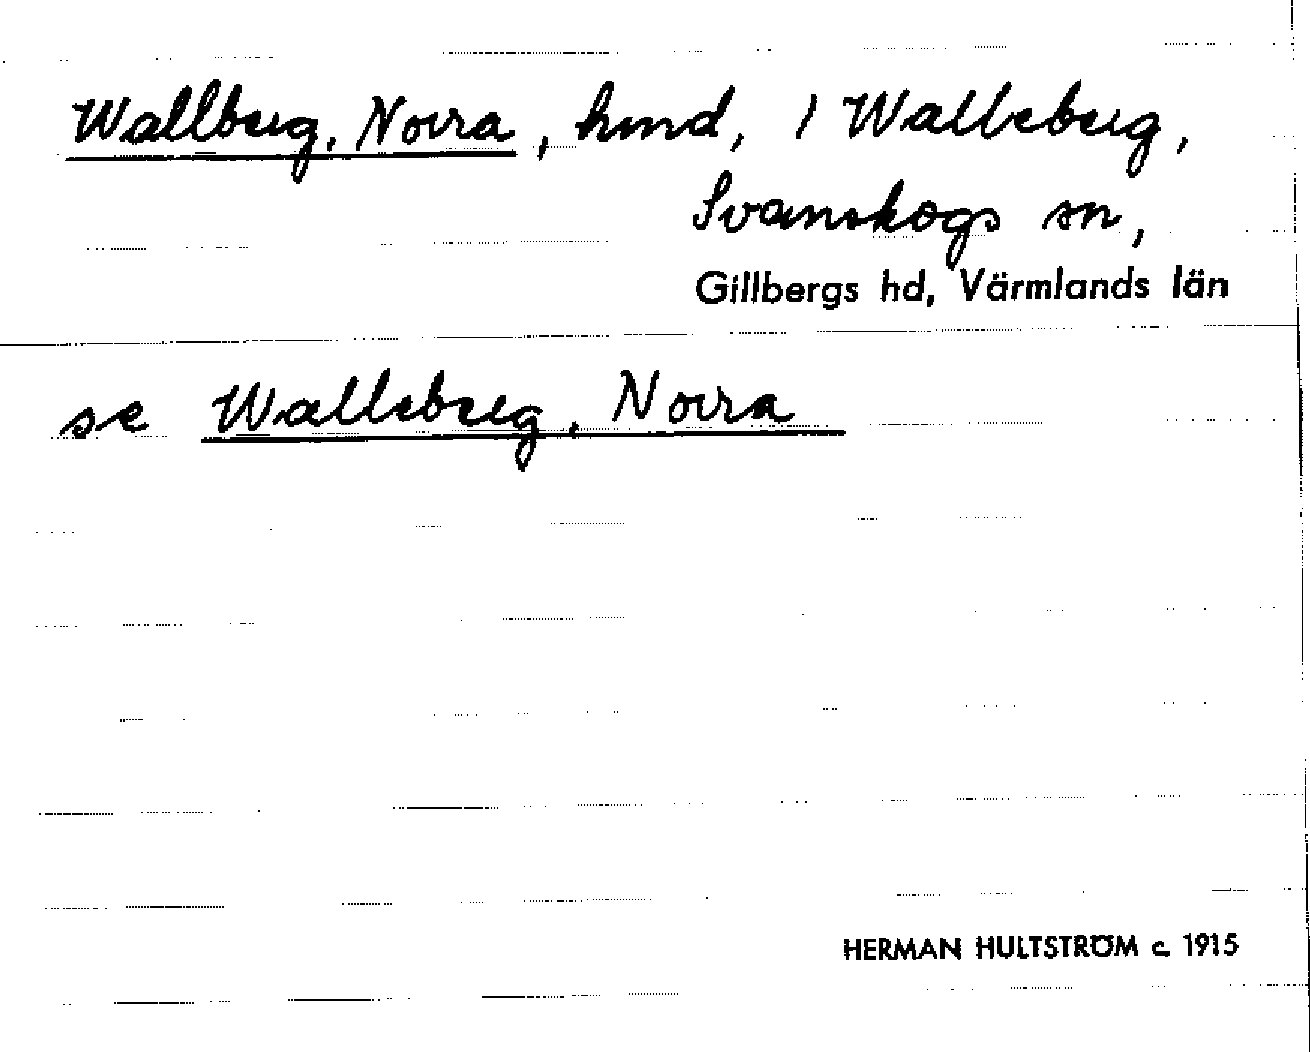 Wallberg, Norra, hmd, 1 Walleberg,
Svanskogs sn,
Gillbergs hd, Värmlands län
se Walleberg, Norra
HERMAN HULTSTRÖM c. 1915